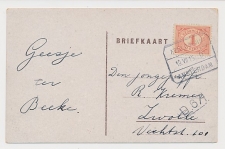 BRIEFKAART
Geesje
ter
Beeke.
Den jongeheer
R. Kremer
Zwolle
Vechtst. 101
1